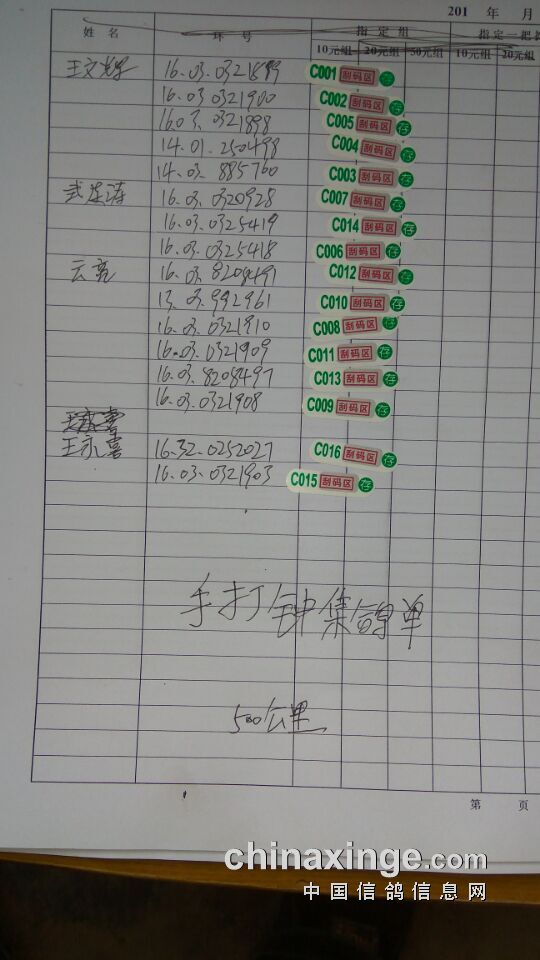 201 年 月
姓 名 环 号 指 定 组 指定一把抓
10元组 20元组 50元组 10元组 20元组
王文光 16.03.0321899 C001 刮码区 存
16.03 0321900 C002 刮码区 存
16.03. 0321898 C005 刮码区 存
14.01.250498 C004 刮码区 存
14.03. 885760 C003 刮码区 存
16.03. 0320928 C007 刮码区 存
16.03.0325419 C014 刮码区 存
16.03.0325418 C006 刮码区 存
云亮 16.03.8208491 C012 刮码区 存
13.03.992961 C010 刮码区 存
16.03.0321910 C008 刮码区 存
16.03.0321909 C011 刮码区 存
16.03.8208497 C013 刮码区 存
16.03.0321908 C009 刮码区 存
王永喜 16-32-0252027 C016 刮码区 存
16.03.0321903 C015 刮码区 存
手打钟集鸽单
500公里
第 页
chinaxinge.com
中国信鸽信息网